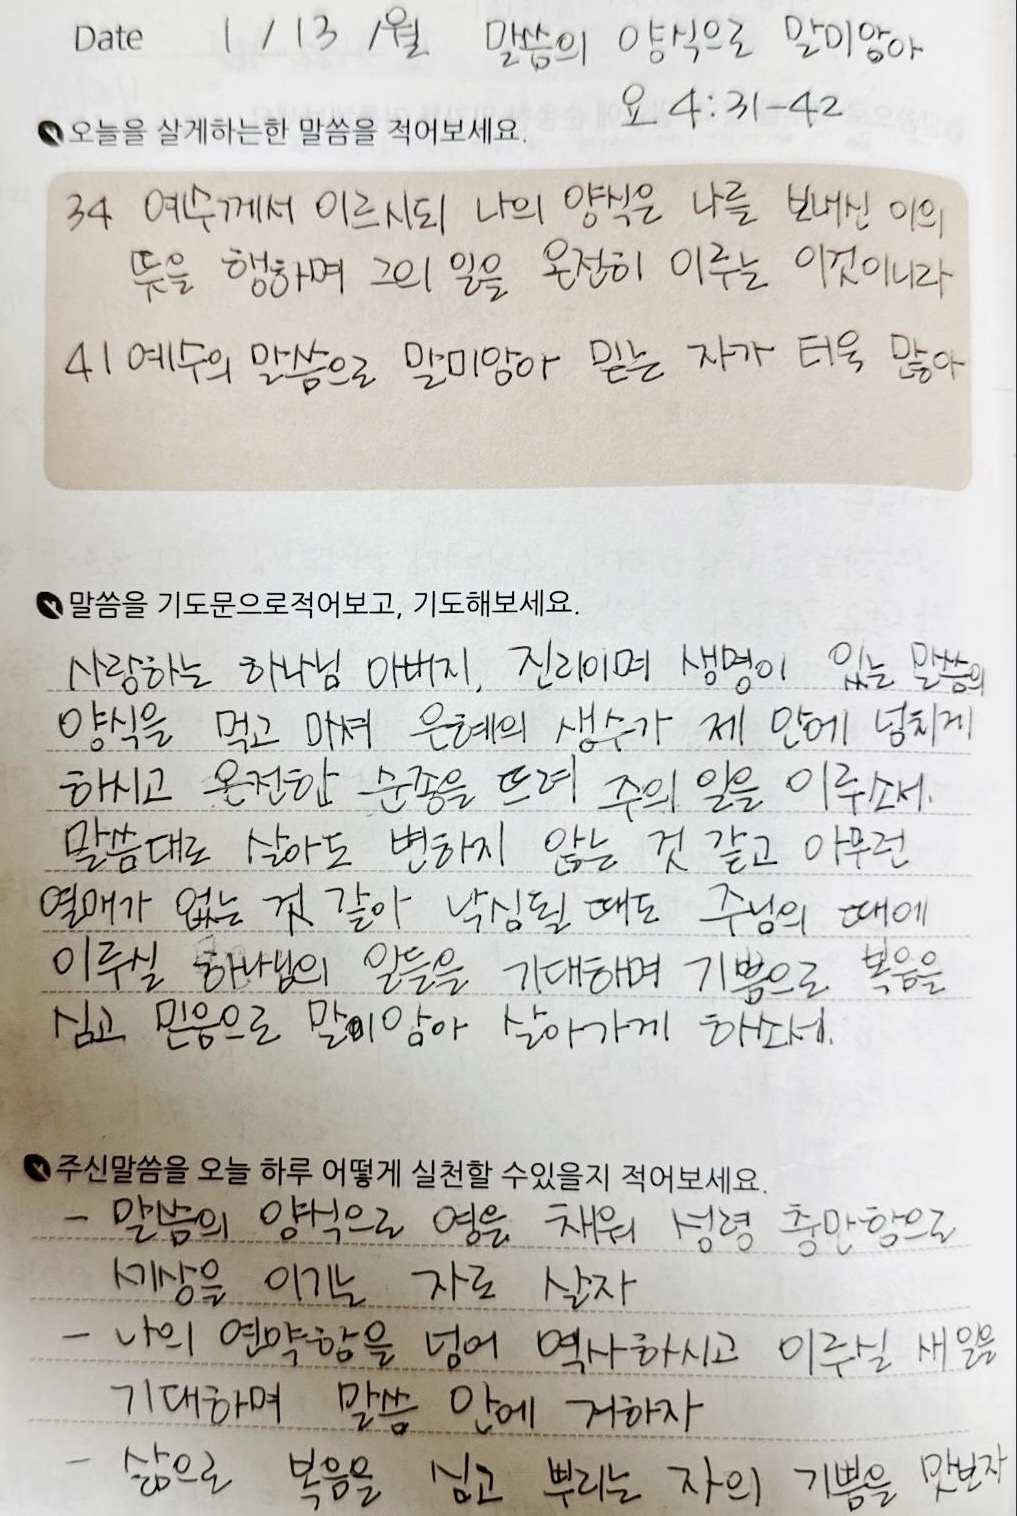 Date 1 / 13 / 월 말씀의 양식으로 말미암아
요 4:31-42
오늘을 살게하는한 말씀을 적어보세요.
34 예수께서 이르시되 나의 양식은 나를 보내신 이의
뜻을 행하며 그의 일을 온전히 이루는 이것이니라
41 예수의 말씀으로 말미암아 믿는 자가 더욱 많아
말씀을 기도문으로적어보고, 기도해보세요.
사랑하는 하나님 아버지, 진리이며 생명이 있는 말씀의
양식을 먹고 마셔 은혜의 생수가 제 안에 넘치게
하시고 온전한 순종을 드려 주의 일을 이루소서.
말씀대로 살아도 변하지 않는 것 같고 아무런
열매가 없는 것 같아 낙심될 때도 주님의 때에
이루실 하나님의 일들을 기대하며 기쁨으로 복음을
심고 믿음으로 말미암아 살아가게 하소서.
주신말씀을 오늘 하루 어떻게 실천할 수있을지 적어보세요.
- 말씀의 양식으로 영을 채워 성령 충만함으로
세상을 이기는 자로 살자
- 나의 연약함을 넘어 역사하시고 이루실 새 일을
기대하며 말씀 안에 거하자
- 삶으로 복음을 심고 뿌리는 자의 기쁨을 맛보자